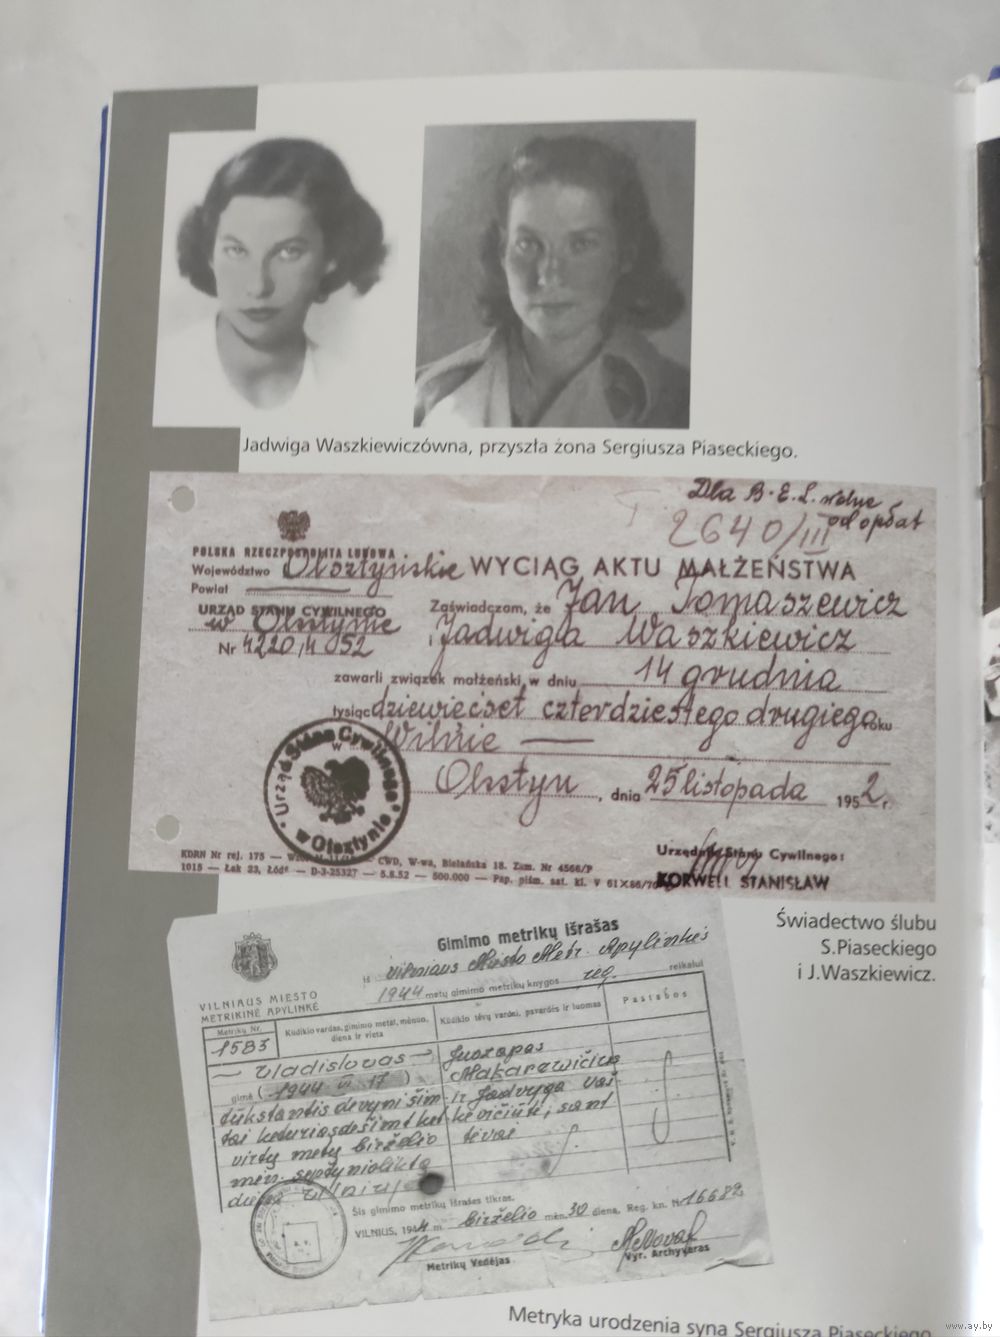 Jadwiga Waszkiewiczówna, przyszła żona Sergiusza Piaseckiego.
Dla B.E.L. wolne
od opłat
2640/III
POLSKA RZECZPOSPOLITA LUDOWA
Województwo Olsztyńskie
WYCIĄG AKTU MAŁŻEŃSTWA
Powiat
URZĄD STANU CYWILNEGO
w Olsztynie
Nr 4220/4 052
Zaświadczam, że Jan Tomaszewicz
i Jadwiga Waszkiewicz
zawarli związek małżeński, w dniu 14 grudnia
tysiąc dziewięćset czterdziestego drugiego roku
w Wilnie
Olsztyn, dnia 25 listopada 1952 r.
Urząd Stanu Cywilnego
w Olsztynie
KDRN Nr rej. 175 — CWD, W-wa, Bielańska 18. Zam. Nr 4566/P
1015 — Łak 23, Łódź — D-3-25327 — 5.8.52 — 500.000 — Pap. piśm. sat. kl. V 61X86/70
Urzędnik Stanu Cywilnego:
KORWELL STANISŁAW
Świadectwo ślubu
S.Piaseckiego
i J.Waszkiewicz.
Gimimo metrikų išrašas
iš Vilniaus Miesto Metr. Apylinkės
1944 metų gimimo metrikų knygos reg. reikalui
VILNIAUS MIESTO
METRIKINĖ APYLINKĖ
Metrikų Nr.
1583
Kūdikio vardas, gimimo metai, mėnuo,
diena ir vieta
Kūdikio tėvų vardai, pavardės ir luomas
Pastabos
Vladislovas
gimė (1944 VI 17)
tūkstantis devyni šim
tai keturiasdešimt ket
virtų metų birželio
mėn. septynioliktą
dieną Vilniuje
Juozapas
Makarevičius
ir Jadvyga Vaš-
kevičiūtė, sant
tėvai
Šis gimimo metrikų išrašas tikras.
VILNIUS, 1944 m. birželio mėn. 30 diena, Reg. kn. Nr 16682
Metrikų Vedėjas
Vyr. Archyvaras
Metryka urodzenia syna Sergiusza Piaseckiego
www.ay.by